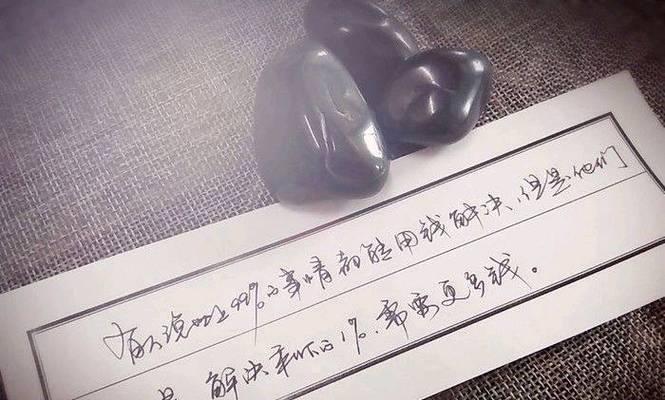 有人说世上99%的事情都能用钱解决,但是他们
是,解决剩下的1%,需要更多钱。